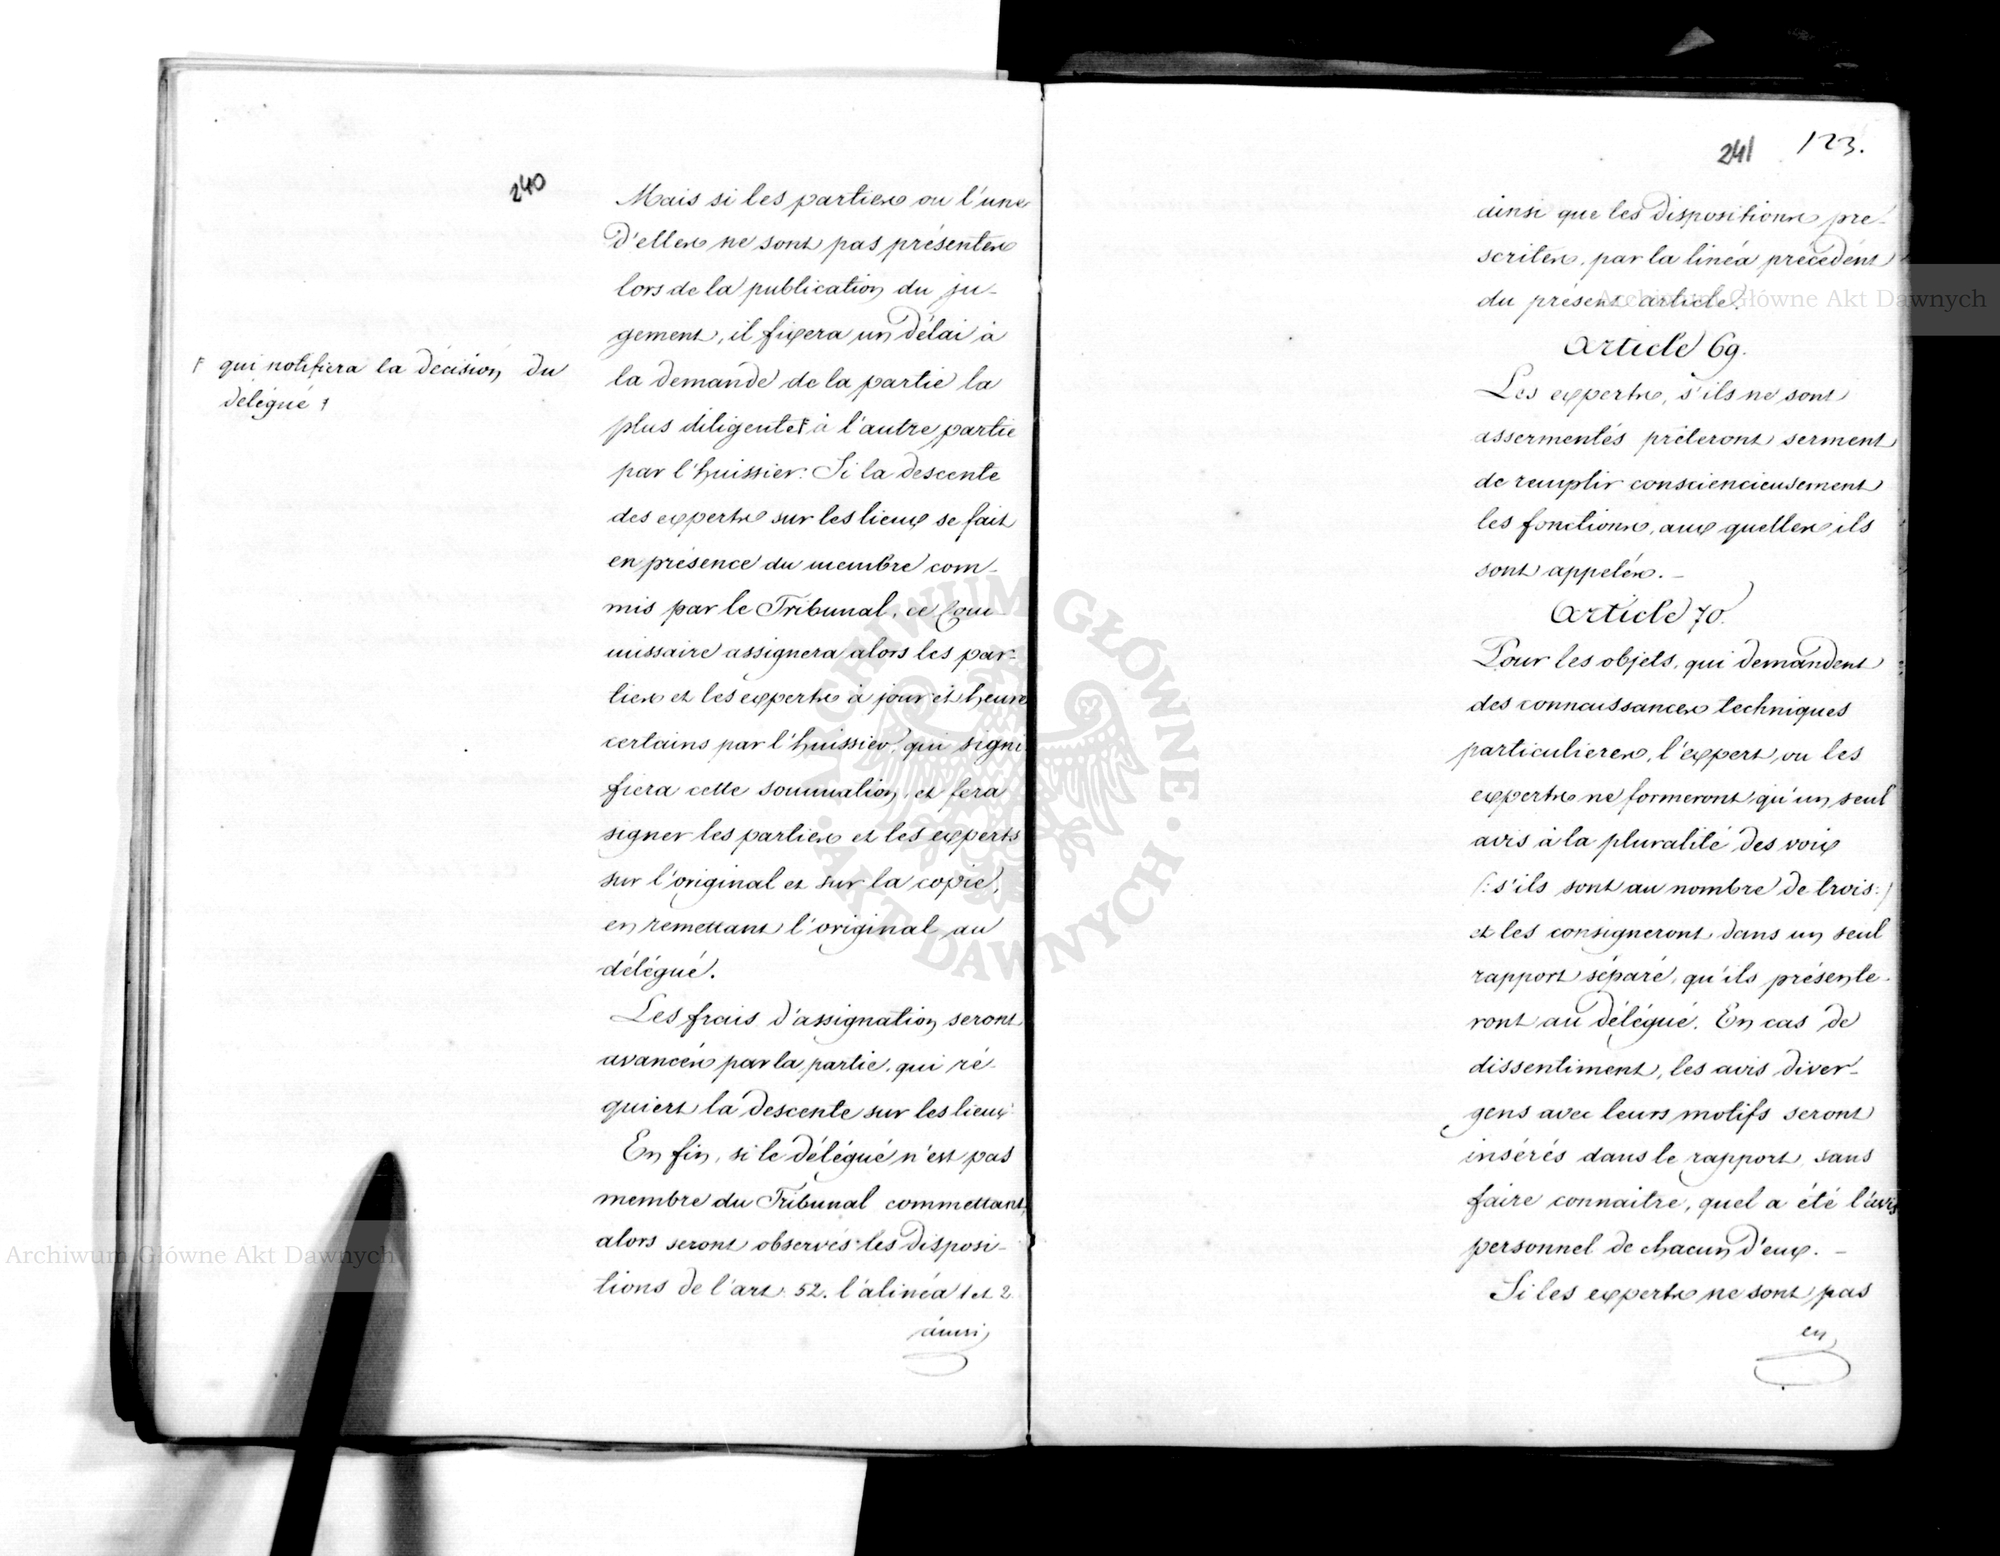 240
Mais si les parties ou l'une
d'elles ne sont pas présentes
lors de la publication du ju-
gement, il fixera un délai à
la demande de la partie la
plus diligente F à l'autre partie
par l'huissier. Si la descente
des experts sur les lieux se fait
en présence du membre com-
mis par le Tribunal, ce Com-
missaire assignera alors les par-
ties et les experts à jour et heure
certains par l'huissier, qui signi-
fiera cette sommation, et fera
signer les parties et les experts
sur l'original et sur la copie,
en remettant l'original au
délégué.
Les frais d'assignation seront
avancés par la partie, qui ré-
quiert la descente sur les lieux
En fin, si le délégué n'est pas
membre du Tribunal commettant,
alors seront observés les disposi-
tions de l'art. 52. l'alinéa 1 et 2
ainsi
F qui notifiera la décision du
délégué F
241 123.
ainsi que les dispositions pre-
scrites, par la linéa précédent
du présent article.
Article 69.
Les experts, s'ils ne sont
assermentés prêteront serment
de remplir consciencieusement
les fonctions, aux quelles ils
sont appelés. -
Article 70.
Pour les objets, qui demandent
des connaissances techniques
particulieres, l'expert ou les
experts ne formeront qu'un seul
avis à la pluralité des voix
(: s'ils sont au nombre de trois :)
et les consigneront dans un seul
rapport séparé, qu'ils présente-
ront au délégué. En cas de
dissentiment, les avis diver-
gens avec leurs motifs seront
insérés dans le rapport, sans
faire connaitre, quel a été l'avis
personnel de chacun d'eux. -
Si les experts ne sont pas
en
ARCHIWUM GŁÓWNE AKT DAWNYCH
Archiwum Główne Akt Dawnych
Archiwum Główne Akt Dawnych